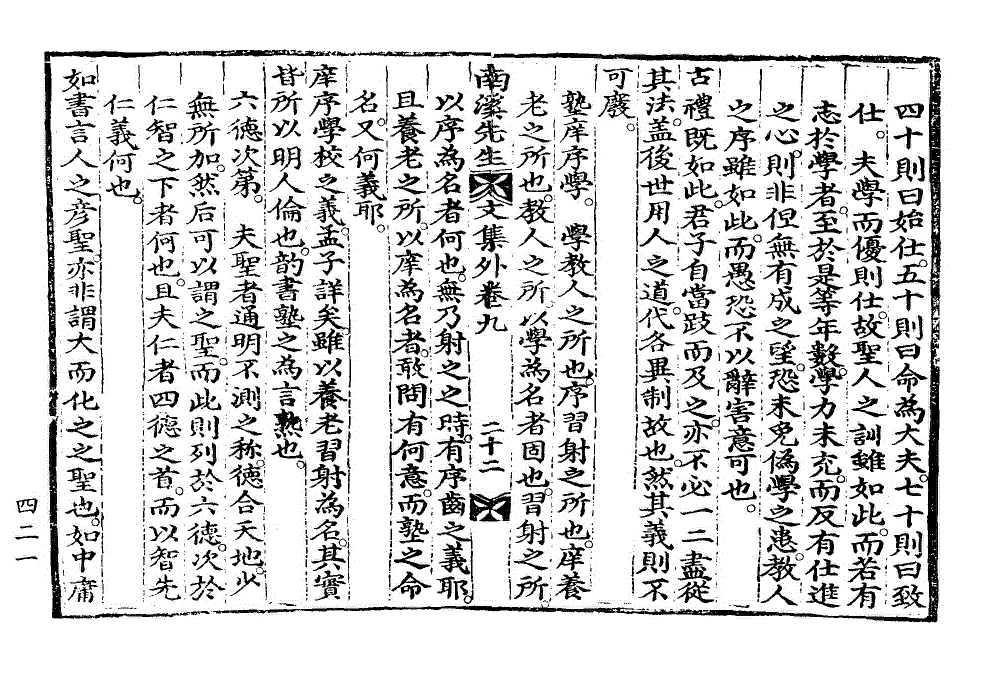 四十則曰始仕。五十則曰命為大夫。七十則曰致
仕。 夫學而優則仕。故聖人之訓雖如此。而若有
志於學者。至於是等年數。學力未充。而反有仕進
之心。則非但無有成之望。恐未免偽學之患。教人
之序雖如此。而愚恐不以辭害意可也。
古禮既如此。君子自當跂而及之。亦不必一二盡從
其法。蓋後世用人之道。代各異制故也。然其義則不
可廢。
塾庠序學。 學教人之所也。序習射之所也。庠養
老之所也。教人之所以學為名者固也。習射之所。
南溪先生文集外卷九 二十二
以序為名者何也。無乃射之之時。有序齒之義耶。
且養老之所。以庠為名者。敢問有何意。而塾之命
名。又何義耶。
庠序學校之義。孟子詳矣。雖以養老習射為名。其實
皆所以明人倫也。韵書塾之為言熟也。
六德次第。 夫聖者通明不測之称。德合天地。少
無所加。然后可以謂之聖。而此則列於六德。次於
仁智之下者何也。且夫仁者四德之首。而以智先
仁義何也。
如書言人之彦聖。亦非謂大而化之之聖也。如中庸
四二一